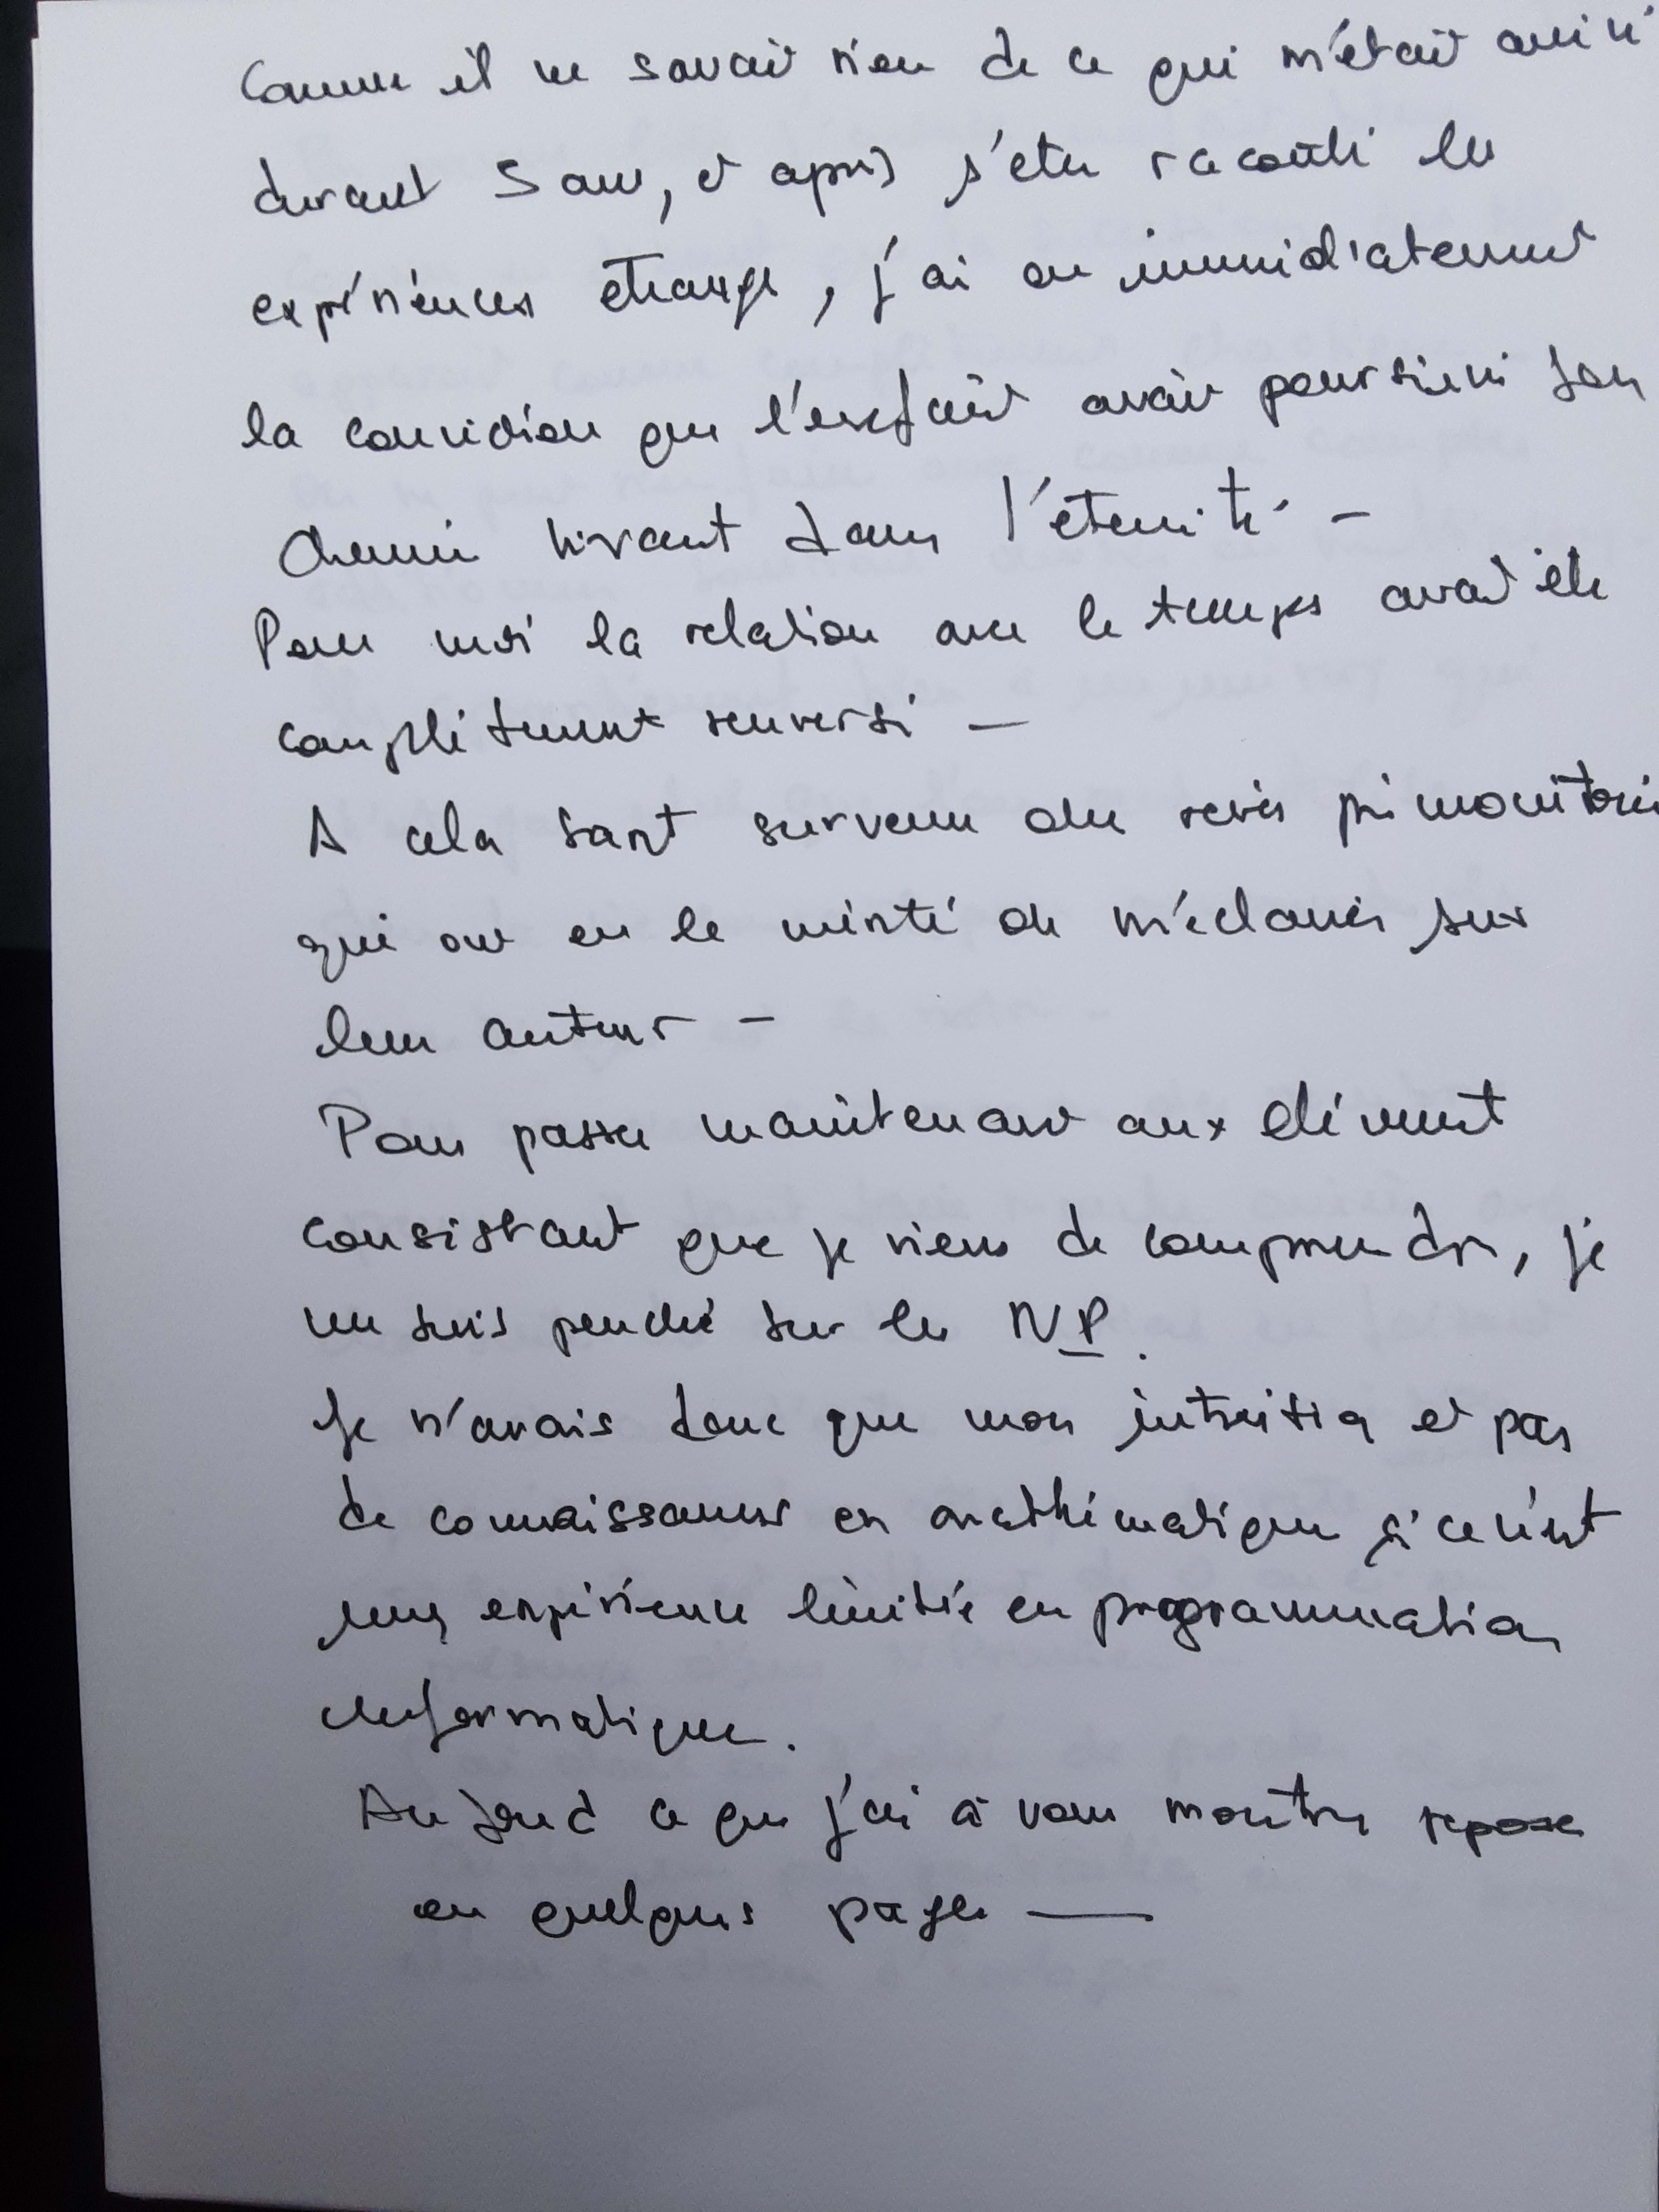 Comme il ne savait rien de ce qui m'était arrivé
durant 5 ans, et après s'etre raconté les
expériences étrange, j'ai eu immédiatement
la conviction que l'enfant avait poursuivi son
chemin vivant dans l'éternité -
Pour moi la relation avec le temps avait été
complétement renversé -
A cela sont survenu des reves prémonitoires
qui ont eu le mérite de m'éclairer sur
leur auteur -
Pour passer maintenant aux élément
consistant que je viens de comprendre, je
me suis penché sur les NP.
Je n'avais donc que mon intuition et pas
de connaissances en mathématique si ce n'est
une expérience limitée en programmation
informatique.
Au fond ce que j'ai à vous montrer repose
en quelques pages —